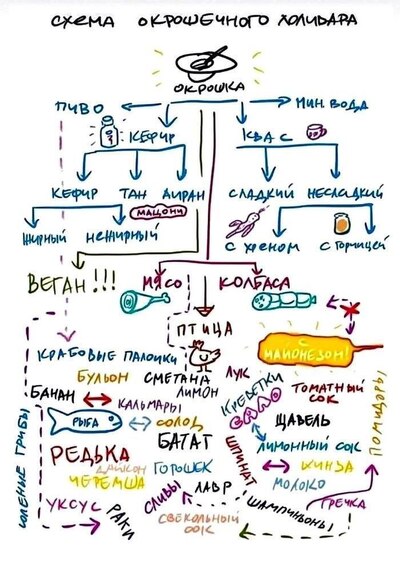 СХЕМА ОКРОШЕЧНОГО ХОЛИВАРА
ОКРОШКА
ПИВО
МИН. ВОДА
КЕФИР
КВАС
КЕФИР ТАН АЙРАН СЛАДКИЙ НЕСЛАДКИЙ
МАЦОНИ
ЖИРНЫЙ НЕЖИРНЫЙ С ХРЕНОМ С ГОРЧИЦЕЙ
ВЕГАН!!! МЯСО КОЛБАСА
ПТИЦА
С МАЙОНЕЗОМ!
КРАБОВЫЕ ПАЛОЧКИ
БУЛЬОН СМЕТАНА ЛУК
БАНАН КАЛЬМАРЫ ЛИМОН КРЕВЕТКИ ТОМАТНЫЙ СОК
ПОМИДОРЫ
РЫБА СОЛОД ЩАВЕЛЬ
СОЛЕНИЕ ГРИБЫ
РЕДЬКА БАТАТ ШПИНАТ ЛИМОННЫЙ СОК
ДАЙКОН ГОРОШЕК КИНЗА
ЧЕРЕМША МОЛОКО
УКСУС РАКИ СЛИВЫ ЛАВР ШАМПИНЬОНЫ ГРЕЧКА
СВЕКОЛЬНЫЙ СОК